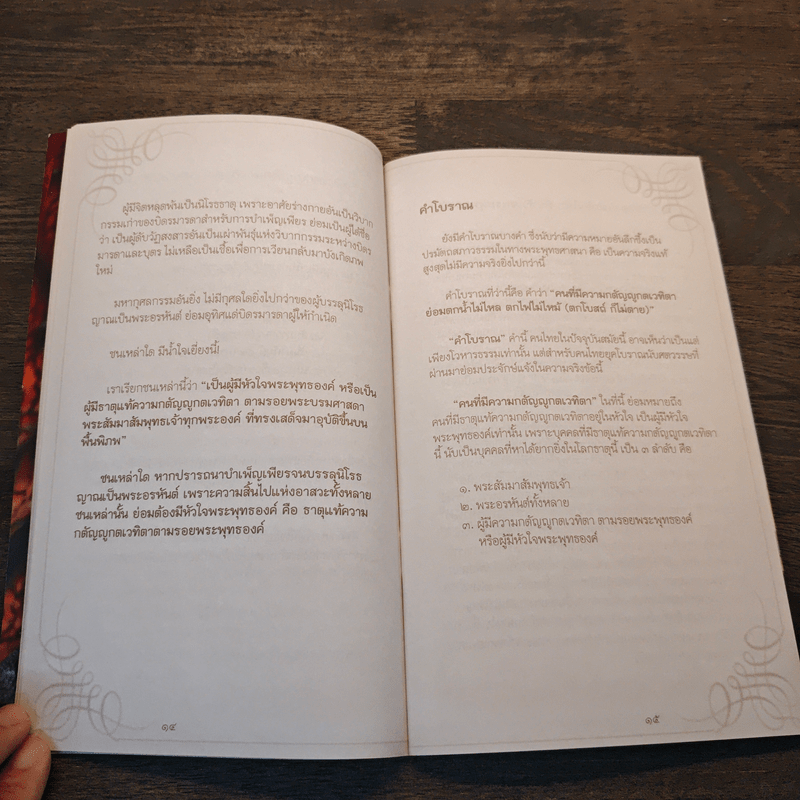 ผู้มีจิตหลุดพ้นเป็นนิโรธธาตุ เพราะอาศัยร่างกายอันเป็นวิบาก
กรรมเก่าของบิดรมารดาสำหรับการบำเพ็ญเพียร ย่อมเป็นผู้ได้ชื่อ
ว่า เป็นผู้ดับวัฏสงสารอันเป็นเผ่าพันธุ์แห่งวิบากกรรมระหว่างบิดร
มารดาและบุตร ไม่เหลือเป็นเชื้อเพื่อการเวียนกลับมาบังเกิดภพ
ใหม่
มหากุศลกรรมอันยิ่ง ไม่มีกุศลใดยิ่งไปกว่าของผู้บรรลุนิโรธ
ญาณเป็นพระอรหันต์ ย่อมอุทิศแด่บิดรมารดาผู้ให้กำเนิด
ชนเหล่าใด มีน้ำใจเยี่ยงนี้!
เราเรียกชนเหล่านี้ว่า “เป็นผู้มีหัวใจพระพุทธองค์ หรือเป็น
ผู้มีธาตุแท้ความกตัญญูกตเวทิตา ตามรอยพระบรมศาสดา
พระสัมมาสัมพุทธเจ้าทุกพระองค์ ที่ทรงเสด็จมาอุบัติขึ้นบน
พื้นพิภพ”
ชนเหล่าใด หากปรารถนาบำเพ็ญเพียรจนบรรลุนิโรธ
ญาณเป็นพระอรหันต์ เพราะความสิ้นไปแห่งอาสวะทั้งหลาย
ชนเหล่านั้น ย่อมต้องมีหัวใจพระพุทธองค์ คือ ธาตุแท้ความ
กตัญญูกตเวทิตาตามรอยพระพุทธองค์
๑๔
คำโบราณ
ยังมีคำโบราณบางคำ ซึ่งนับว่ามีความหมายอันลึกซึ้งเป็น
ปรมัตถสภาวธรรมในทางพระพุทธศาสนา คือ เป็นความจริงแท้
สูงสุดไม่มีความจริงยิ่งไปกว่านี้
คำโบราณที่ว่านี้คือ คำว่า “คนที่มีความกตัญญูกตเวทิตา
ย่อมตกน้ำไม่ไหล ตกไฟไม่ไหม้ (ตกโบสถ์ ก็ไม่ตาย)”
“คำโบราณ” คำนี้ คนไทยในปัจจุบันสมัยนี้ อาจเห็นว่าเป็นแต่
เพียงโวหารธรรมเท่านั้น แต่สำหรับคนไทยยุคโบราณนับศตวรรษที่
ผ่านมาย่อมประจักษ์แจ้งในความจริงข้อนี้
“คนที่มีความกตัญญูกตเวทิตา” ในที่นี้ ย่อมหมายถึง
คนที่มีธาตุแท้ความกตัญญูกตเวทิตาอยู่ในหัวใจ เป็นผู้มีหัวใจ
พระพุทธองค์เท่านั้น เพราะบุคคลที่มีธาตุแท้ความกตัญญูกตเวทิตา
นี้ นับเป็นบุคคลที่หาได้ยากยิ่งในโลกธาตุนี้ เป็น ๓ ลำดับ คือ
๑. พระสัมมาสัมพุทธเจ้า
๒. พระอรหันต์ทั้งหลาย
๓. ผู้มีความกตัญญูกตเวทิตา ตามรอยพระพุทธองค์
หรือผู้มีหัวใจพระพุทธองค์
๑๕